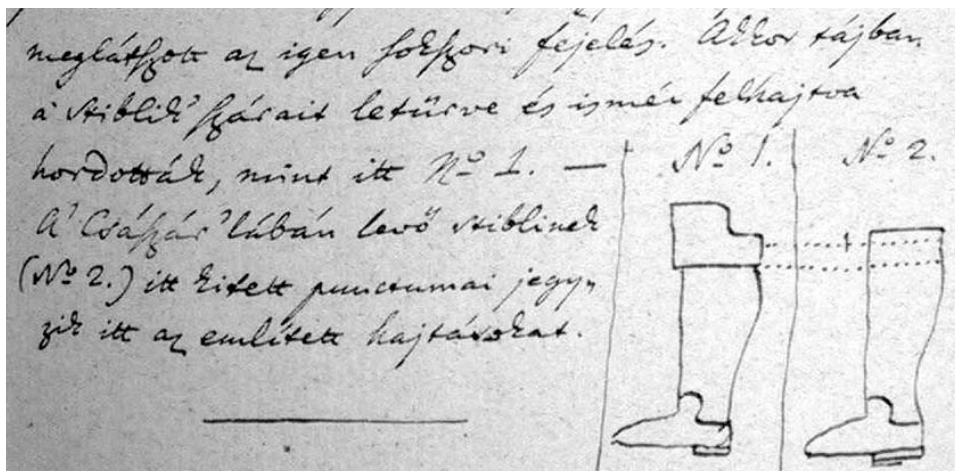 meglátszott az igen sokszori fejelés. Akkor tájban
a stiblik' szárait letürve és ismér felhajtva
hordották, mint itt No 1. —
A' Császár' lábán levő stiblinek
(No 2.) itt kitett punctumai jegy„
zik itt az említett hajtásokat.
No 1.
No 2.